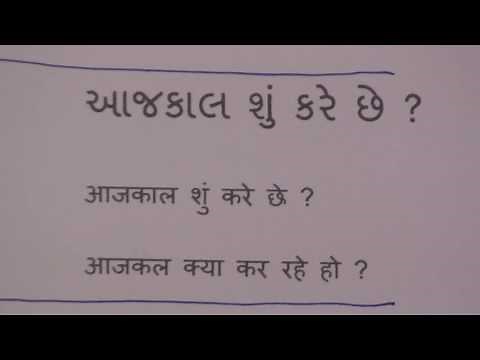 આજકાલ શું કરે છે ?
आजकाल शुं करे छे ?
आजकल क्या कर रहे हो ?